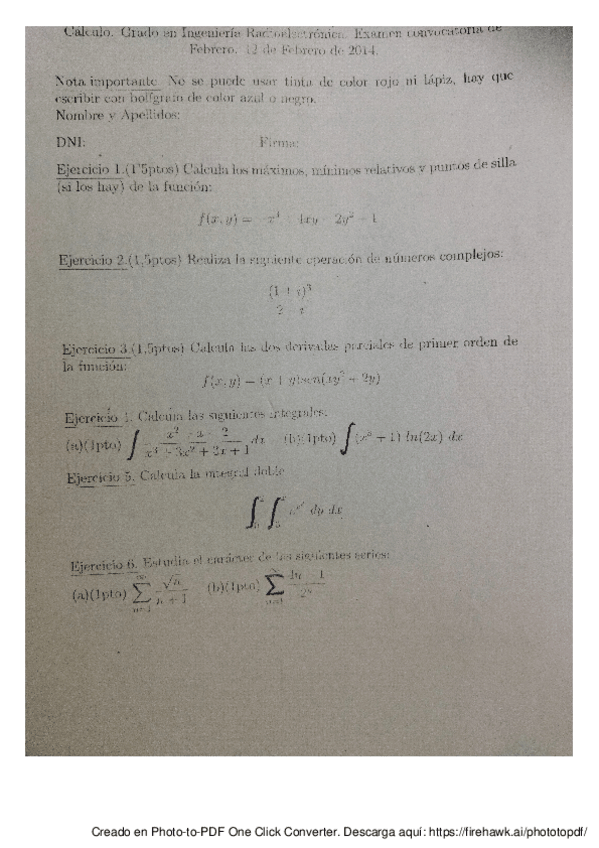 Cálculo. Grado en Ingeniería Radioelectrónica. Examen convocatoria de
Febrero. 12 de Febrero de 2014.
Nota importante No se puede usar tinta de color rojo ni lápiz, hay que
escribir con bolígrafo de color azul o negro.
Nombre y Apellidos:
DNI: Firma:
Ejercicio 1.(1'5ptos) Calcula los máximos, mínimos relativos y puntos de silla
(si los hay) de la función:
f(x, y) =
Ejercicio 2.(1,5ptos) Realiza la siguiente operación de números complejos:
Ejercicio 3.(1,5ptos) Calcula las dos derivadas parciales de primer orden de
la función:
f(x, y) = (x + y)sen(
Ejercicio 4. Calcula las siguientes integrales:
(a)(1pto) ∫ dx (b)(1pto) ∫ ln(2x) dx
Ejercicio 5. Calcula la integral doble
∫ ∫ dy dx
Ejercicio 6. Estudia el carácter de las siguientes series:
(a)(1pto) ∑ √n / n + 1 (b)(1pto) ∑
Creado en Photo-to-PDF One Click Converter. Descarga aquí: https://firehawk.ai/phototopdf/